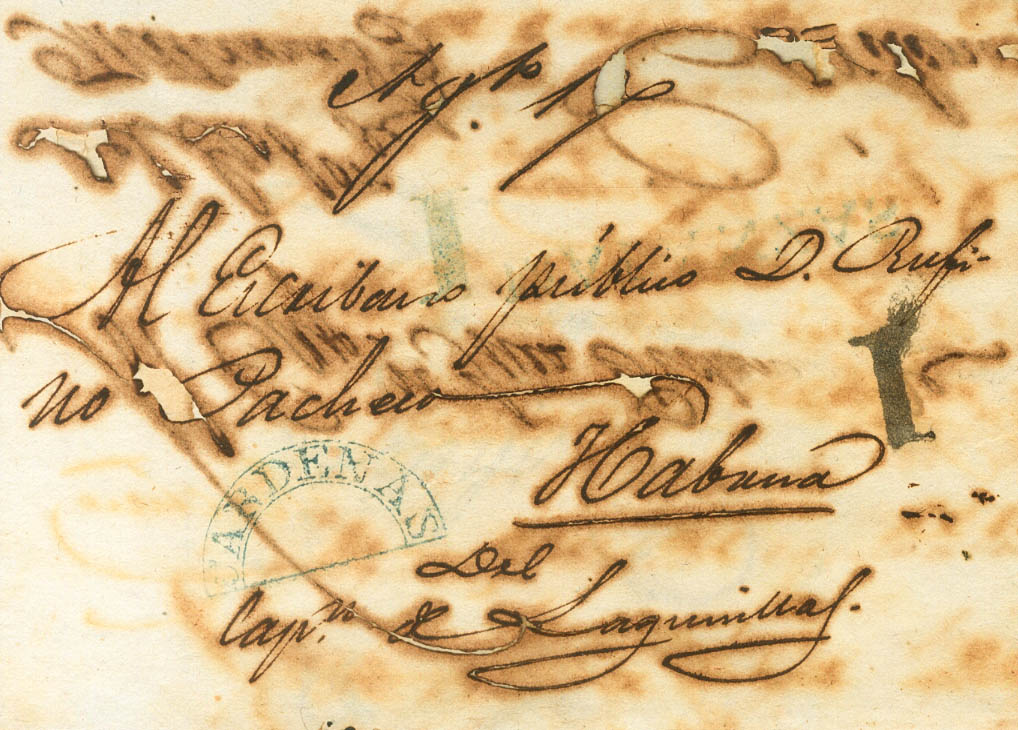 Al Escribano público D. Rufi-
no Pacheco
Habana
1
CARDENAS
Del
Capn. de Lagunillas.